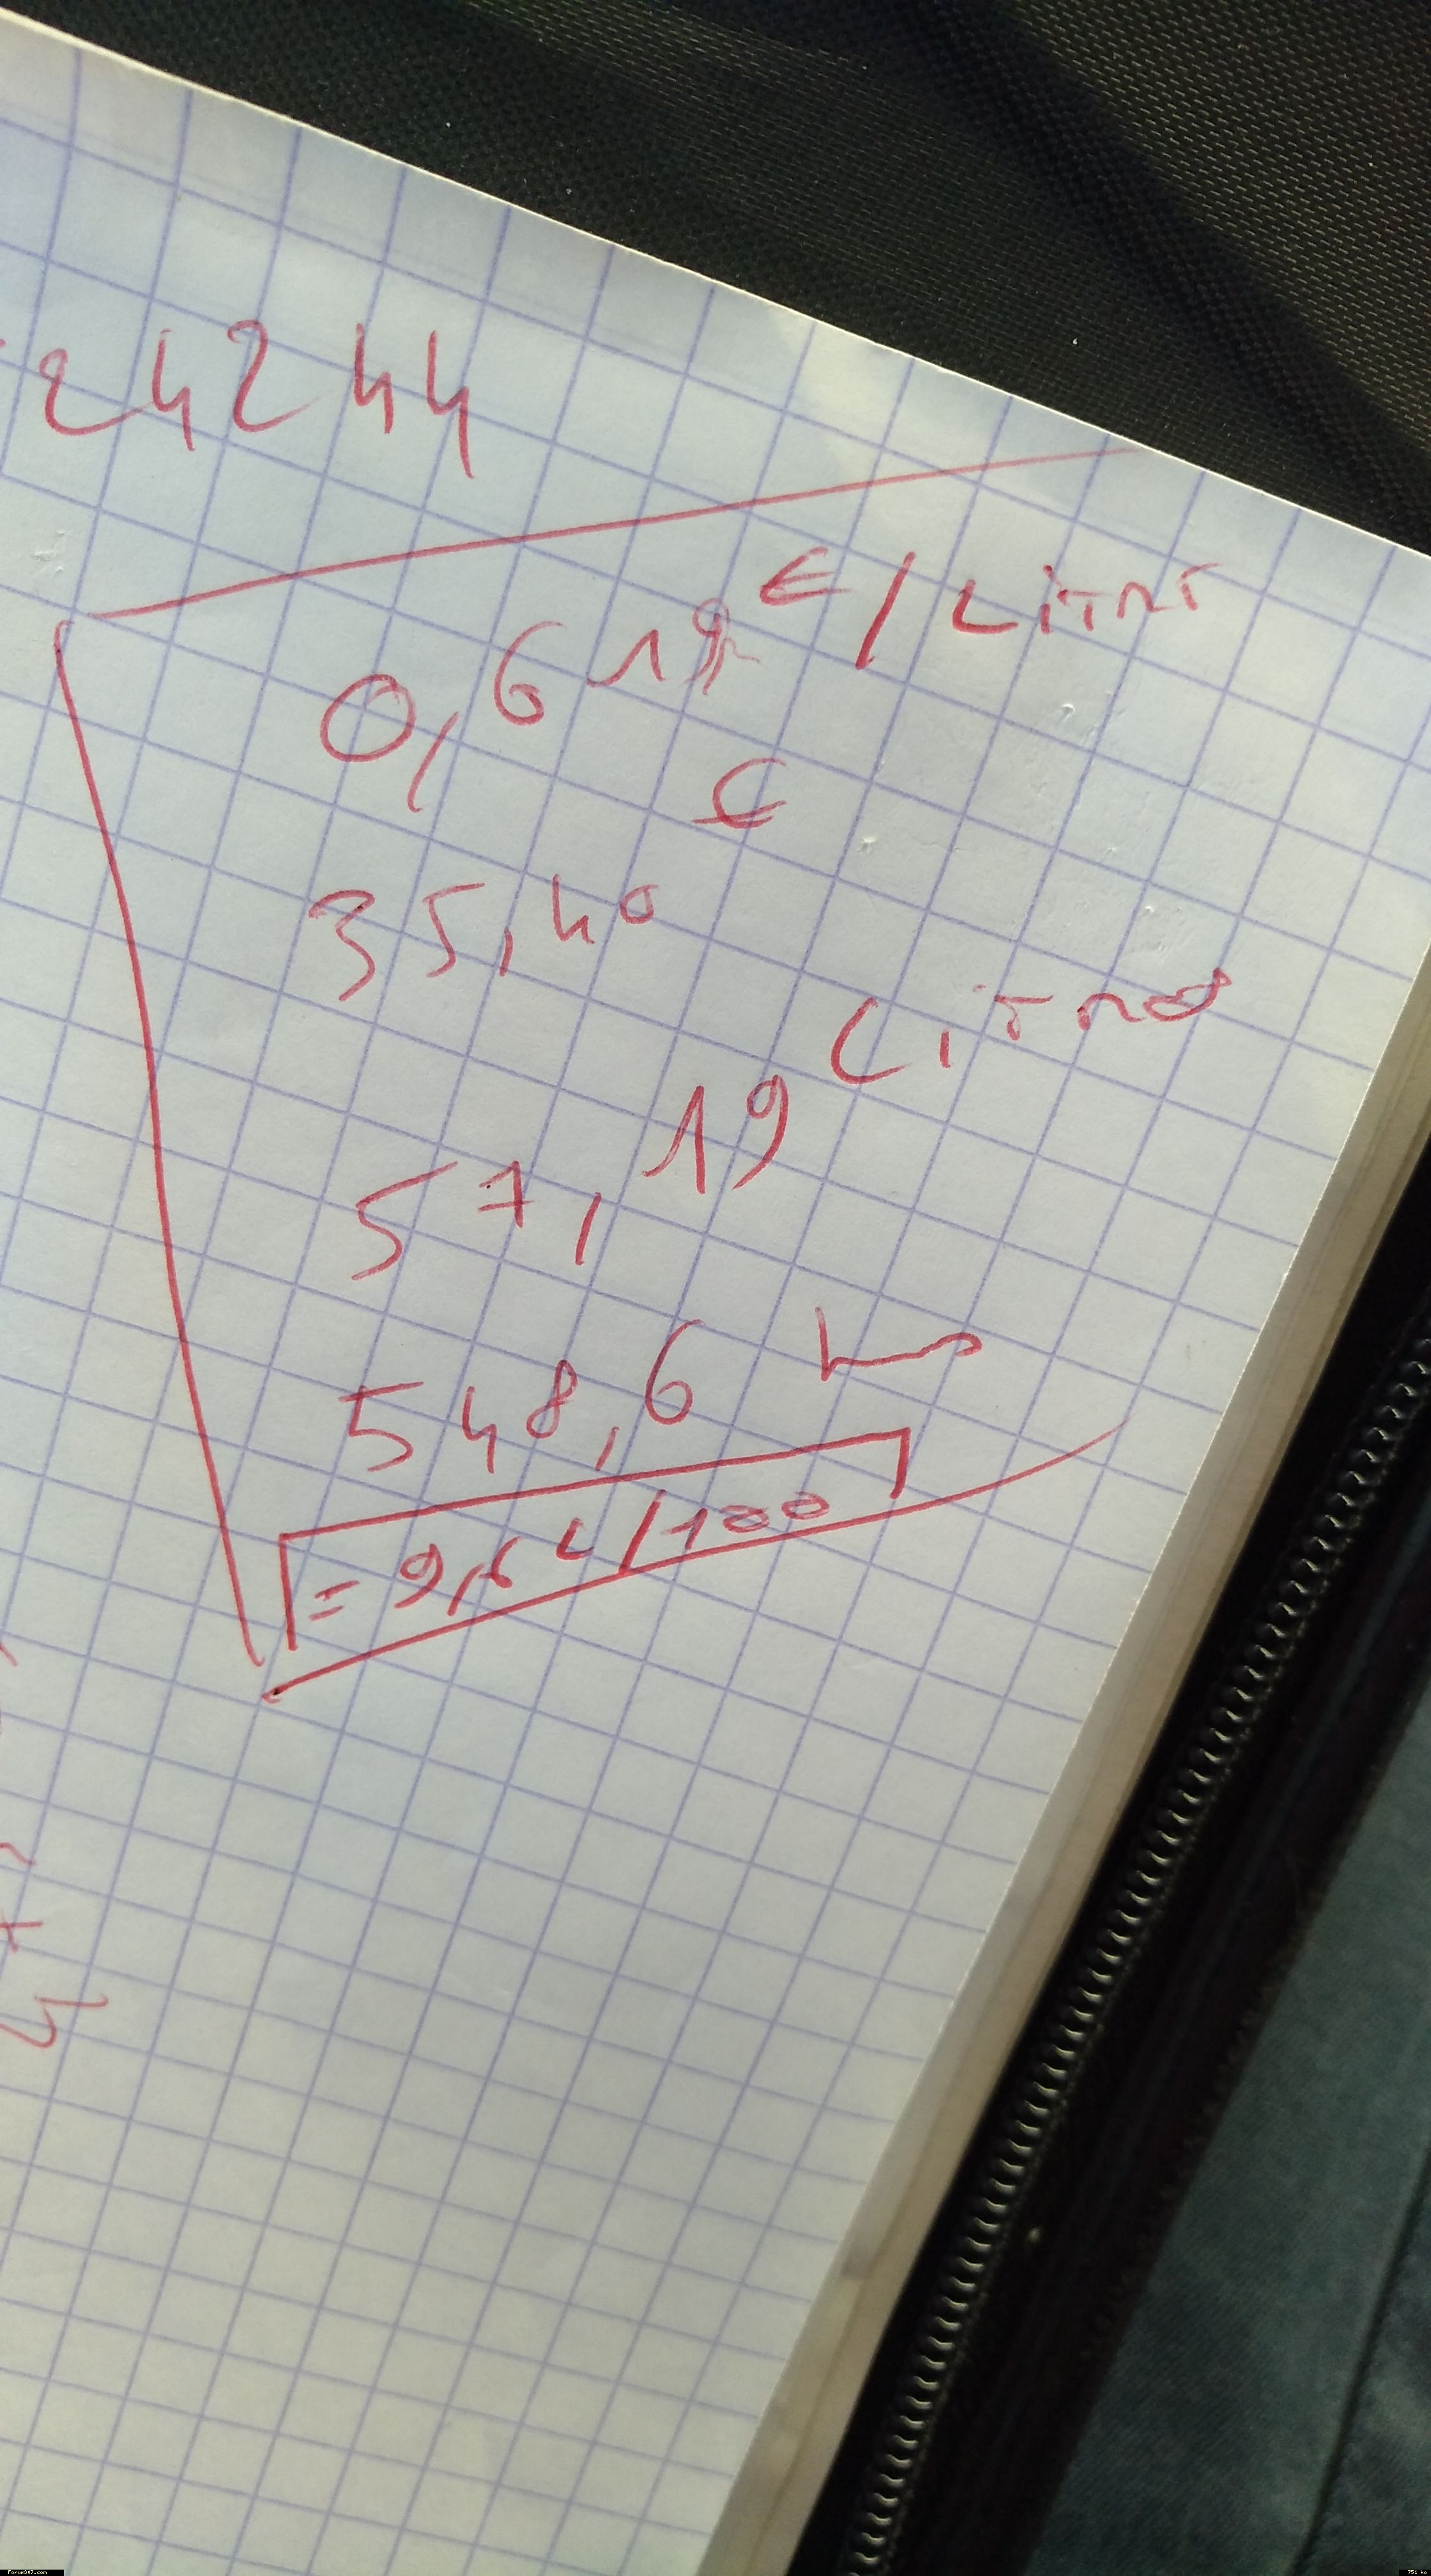 24244
0,619 €/Litre
35,40 €
57,19 Litres
548,6 km
= 9,6 L/100
Forum307.com
751 ko